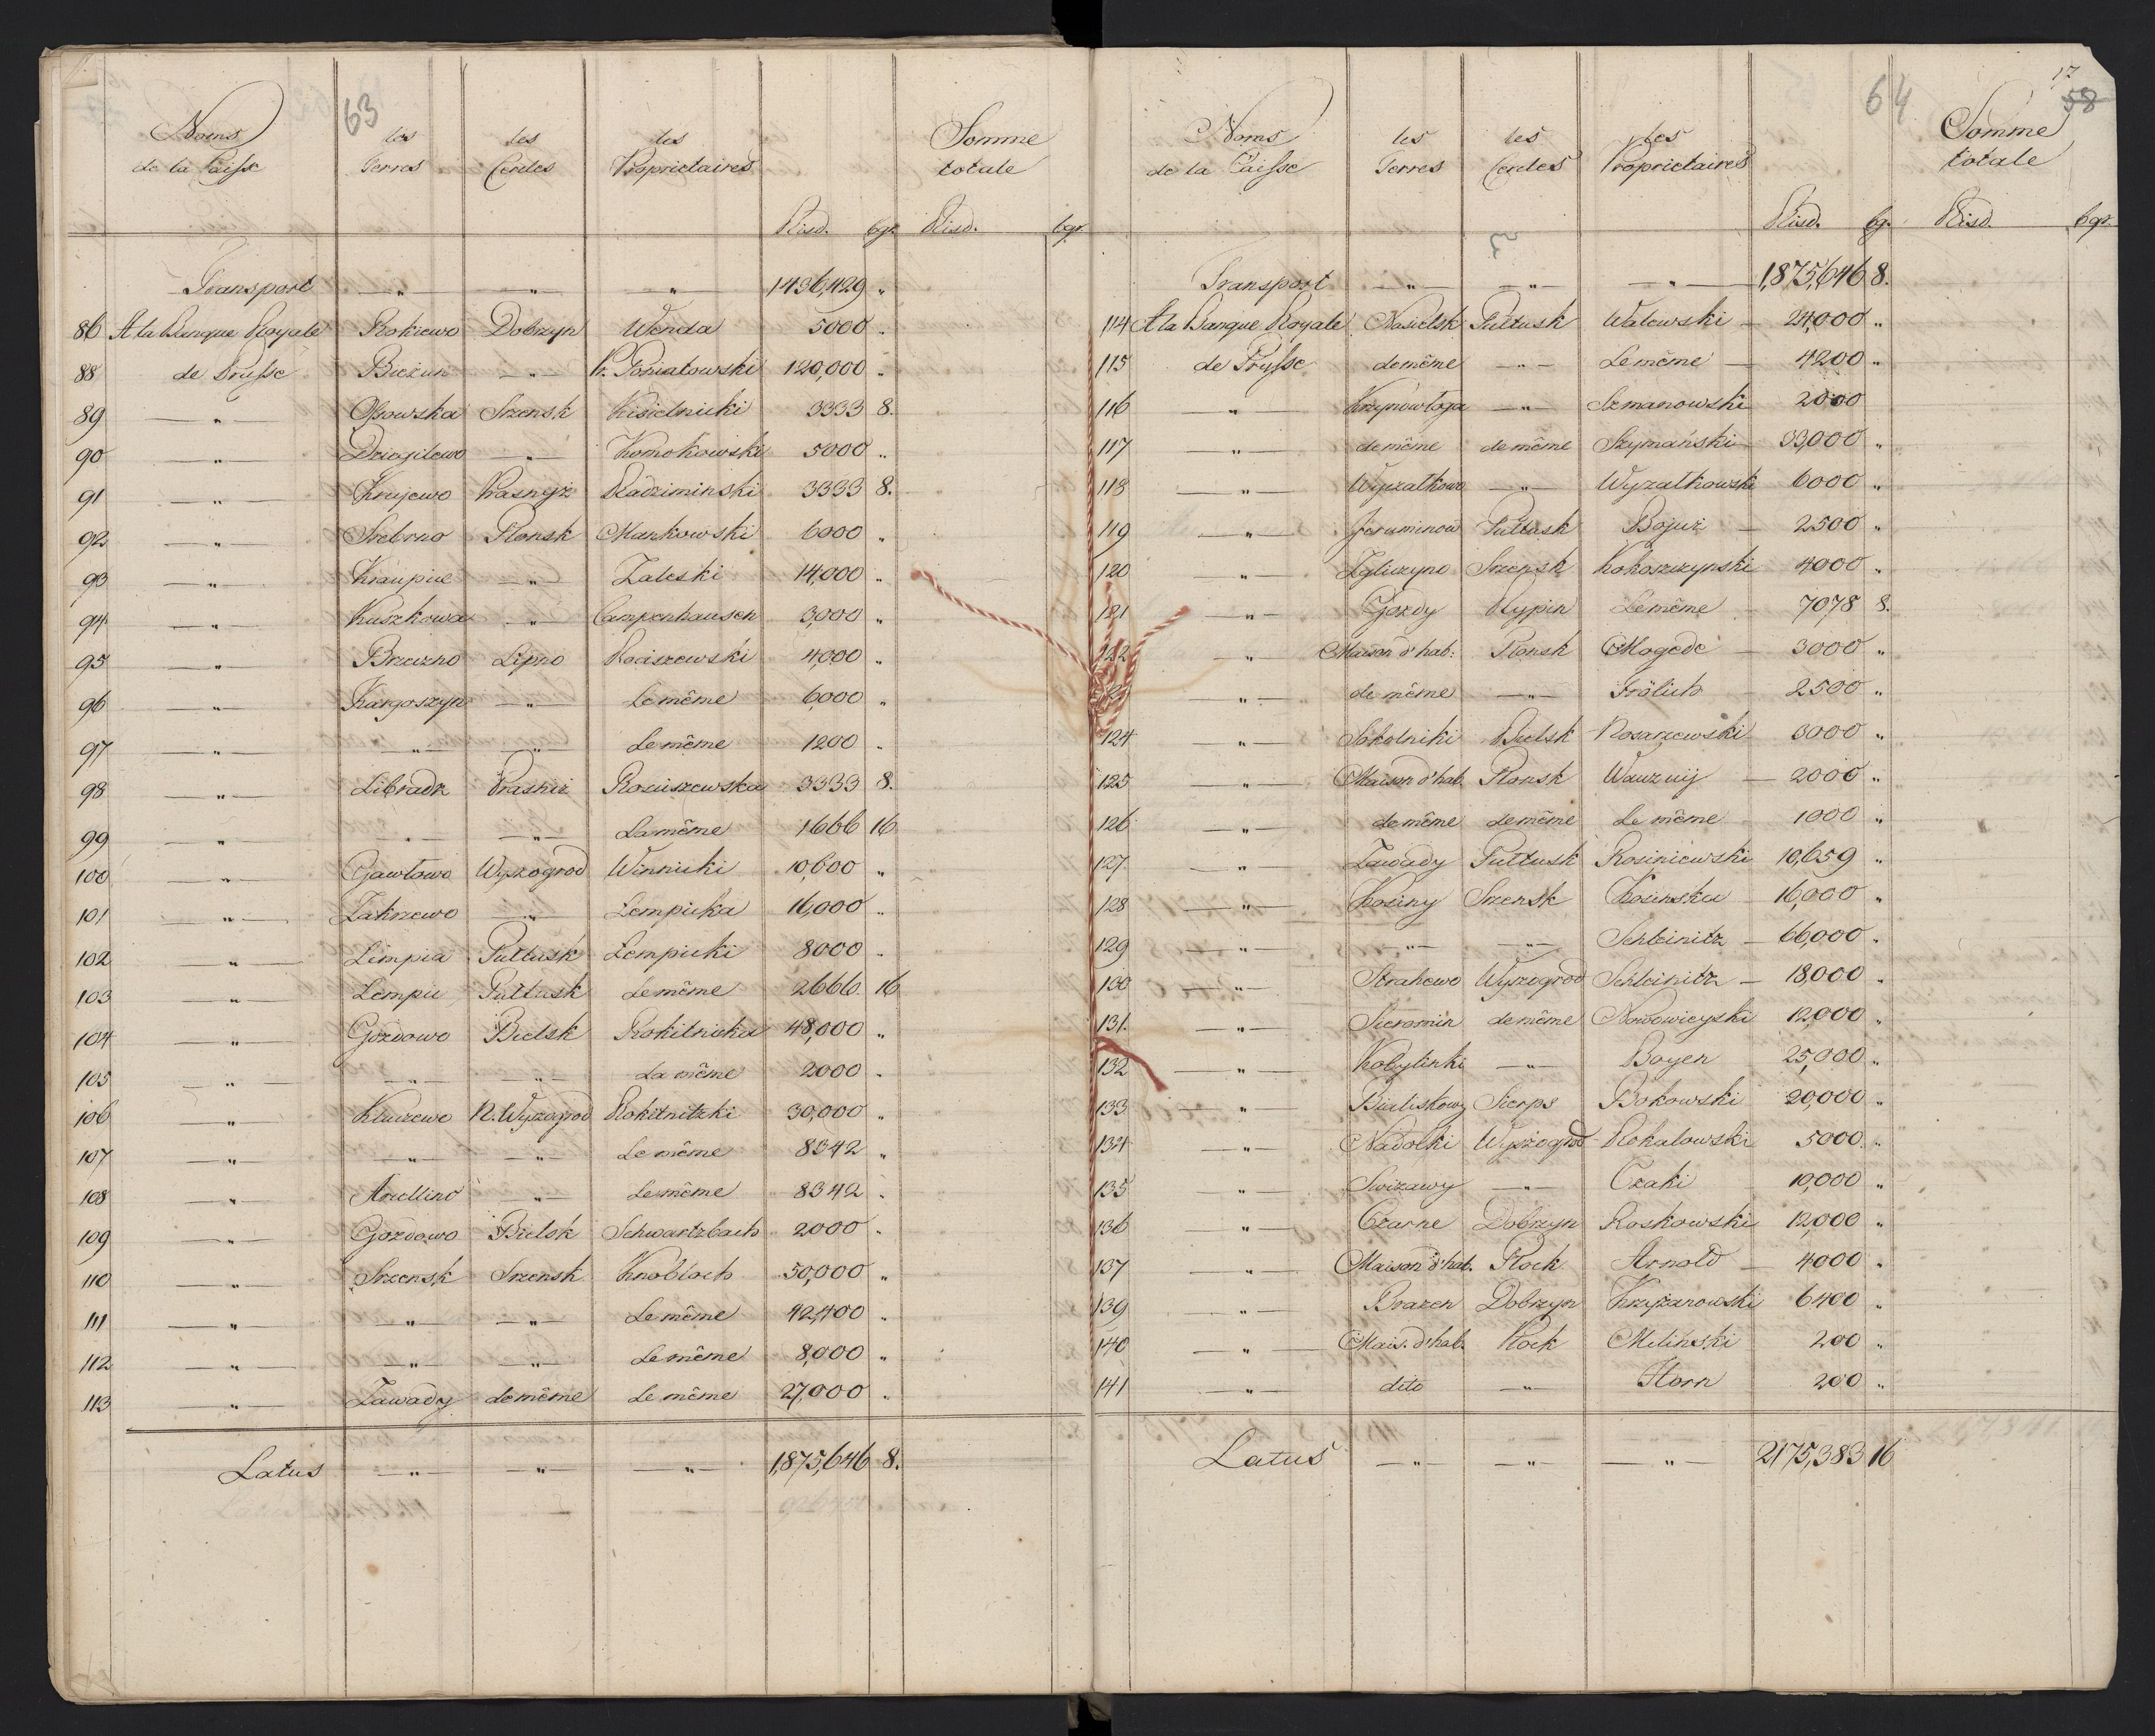 63
Noms les les les Somme
de la Caisse Terres Cercles Proprietaires totale
Risd. bgr. Risd. bgr.
Transport — „ — — „ — — „ — 1436,429 „
86 A la Banque Royale Rokiewo Dobrzyn Wenda 5000 „
88 de Prusse Biezun — „ — P. Poniatowski 120,000 „
89 — „ — Ossowska Srzensk Kisielnicki 3333 8.
90 — „ — — „ — Komokowski 5000 „
91 — „ — Krajewo Prasnijz Radziminski 3333 8.
92 — „ — Srebrno Plonsk Mankowski 6000 „
93 — „ — — „ — Zaleski 14,000 „
94 — „ — Kuszkowa — „ — Campenhausen 3,000 „
95 — „ — Brzezno Lipno Rociszewski 4,000 „
96 — „ — Kargoszyn — „ — Le même 6,000 „
97 — „ — — „ — — „ — Le même 1200 „
98 — „ — Libradz Prasnic Rosciszewska 3333 8.
99 — „ — — „ — — „ — La même 1666 16
100 — „ — Gawlowo Wyszogrod Winnicki 10,600 „
101 — „ — Zakrzewo — „ — Lempicka 16,000 „
102 — „ — Limpia Pultusk Lempicki 8000 „
103 — „ — Lempic Pultusk Le même 2666. 16
104 — „ — Gozdowo Bielsk Rokitnicka 48,000 „
105 — „ — — „ — — „ — La même 2000 „
106 — „ — Kluczewo N. Wyszogrod Rokitnitzki 30,000 „
107 — „ — — „ — — „ — Le même 8342 „
108 — „ — — „ — Le même 8342 „
109 — „ — Gozdowo Bielsk Schwartzbach 2000 „
110 — „ — Srzensk Srzensk Knobloch 50,000 „
111 — „ — — „ — — „ — Le même 42,400 „
112 — „ — — „ — — „ — Le même 8,000 „
113 — „ — Zawady de même Le même 27,000 „
Latus — „ — — „ — — „ — 1,875,646 8.
64 17
58
Noms les les les Somme
de la Caisse Terres Cercles Proprietaires totale
Risd. bg. Risd. bgr.
Transport — „ — — „ — — „ — 1,875,646 8.
114 A la Banque Royale Nasielsk Pultusk Walewski — 24,000 „
115 de Prusse de même — „ — Le même — 4200 „
116 — „ — Krzynowloga — „ — Szmanowski 2000
117 — „ — de même de même Szymański — 33,000 „
118 — „ — — „ — 6000 „
119 — „ — Pultusk 2500 „
120 — „ — Zgliczyno Srzensk Kokoszczynski 4000 „
121 — „ — Gozdy Rypin Le même 7078 8.
122 — „ — Maison d'hab: Plonsk Mogede — 3000 „
— „ — de même — „ — Frölich 2500 „
124 — „ — Sokolniki Bielsk Rosarzewski 3000 „
125 — „ — Maison d'hab. Plonsk — 2000 „
126 — „ — de même de même Le même 1000 „
127. — „ — Zawady Pultusk Rosiniewski 10,659 „
128 — „ — Kosiny Srzensk Kosinska — 16,000 „
129 — „ — — „ — — „ — Schleinitz — 66,000 „
130 — „ — Strahewo Wyszogrod Schleinitz — 18,000 „
131. — „ — Sieromin de même Nowowieyski 12,000 „
132 — „ — Kobylinki — „ — Boyen 25,000 „
133 — „ — Sierps Bokowski 20,000 „
134 — „ — Nadolki Wyszogrod Rokalowski 5000 „
135 — „ — — „ — Czaki 10,000 „
136 — „ — Czarne Dobrzyn Roskowski 12,000 „
137 — „ — Maison d'hab. Plock Arnold — 4000 „
139 — „ — Brazen Dobrzyn Krzyzanowski 6400 „
140 — „ — Mais. d'hab. Plock Milinski 200 „
141 — „ — dito — „ — Horn 200 „
Latus — „ — — „ — — „ — 2175,383 16